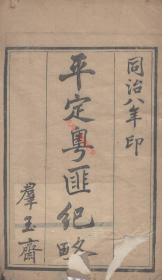 同治八年印
平定粵匪紀略
羣玉齋